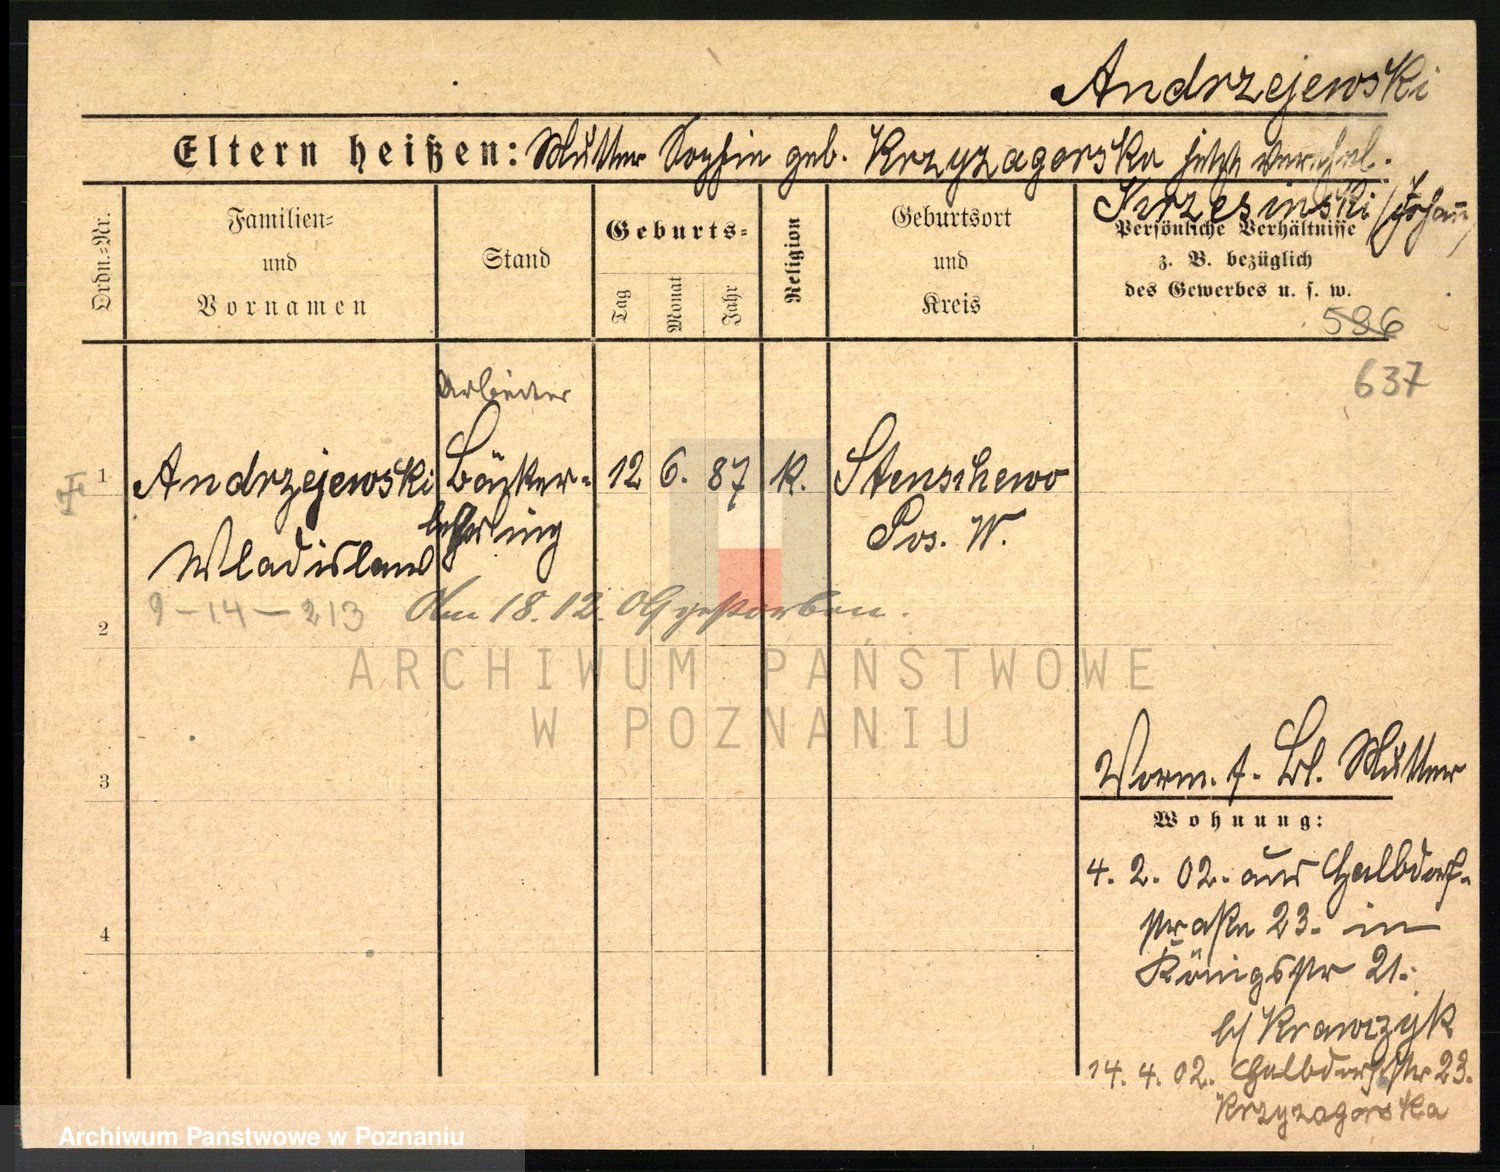 Andrzejewski
Eltern heißen: Mutter Sophie geb. Krzyzagorska jetzt verehel.
Krzesinski (Johann)
Ordn.-Nr.
Familien- und Vornamen
Stand
Geburts-
Tag
Monat
Jahr
Religion
Geburtsort und Kreis
Persönliche Verhältnisse
z. B. bezüglich
des Gewerbes u. s. w.
586
637
Arbeiter
1 Andrzejewski Bäcker- 12 6. 87 K. Stenschewo
lehrling Pos. W.
Wladislaus
9-14-213 Am 18.12.09 gestorben.
2
ARCHIWUM PAŃSTWOWE
W POZNANIU
3
4
Vorm. f. Bl. Mutter
Wohnung:
4. 2. 02. aus Halbdorf-
straße 23. in
Königsstr 21.
b/ Krawczyk
14. 4. 02. Halbdorfstr 23.
Krzyzagorska
Archiwum Państwowe w Poznaniu